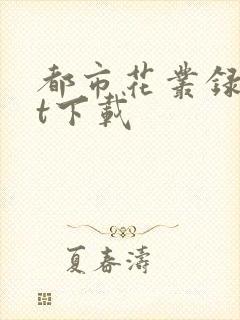 都市花丛録
t下載
夏春濤